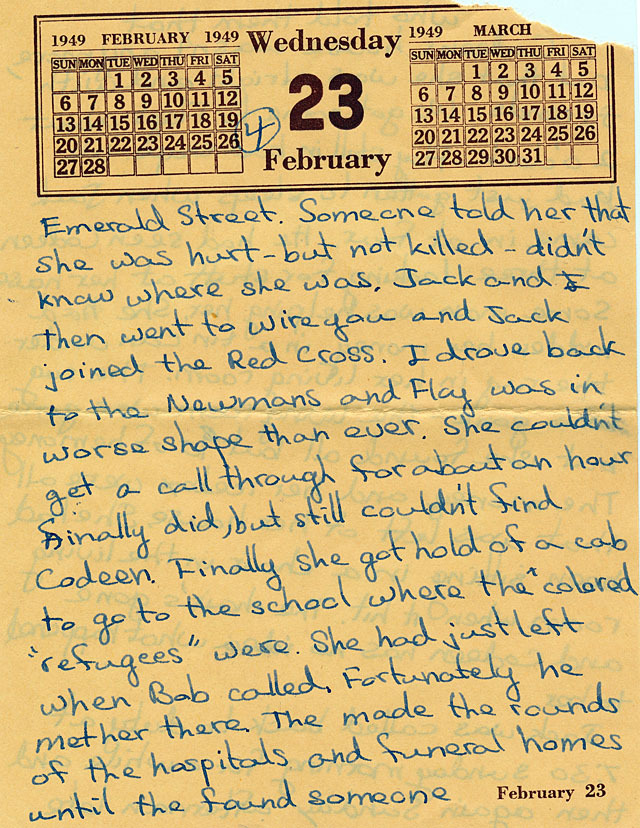 1949 FEBRUARY 1949
SUN MON TUE WED THU FRI SAT
1 2 3 4 5
6 7 8 9 10 11 12
13 14 15 16 17 18 19
20 21 22 23 24 25 26
27 28
Wednesday
23
February
4
1949 MARCH
SUN MON TUE WED THU FRI SAT
1 2 3 4 5
6 7 8 9 10 11 12
13 14 15 16 17 18 19
20 21 22 23 24 25 26
27 28 29 30 31
Emerald Street. Someone told her that
she was hurt - but not killed - didn't
know where she was. Jack and I
then went to wire you and Jack
joined the Red Cross. I drove back
to the Newmans and Flay was in
worse shape than ever. She couldn't
get a call through for about an hour
Finally did, but still couldn't find
Codeen. Finally she got hold of a cab
to go to the school where the "colored
"refugees" were. She had just left
when Bob called. Fortunately he
mether there. The made the rounds
of the hospitals and funeral homes
until the found someone
February 23